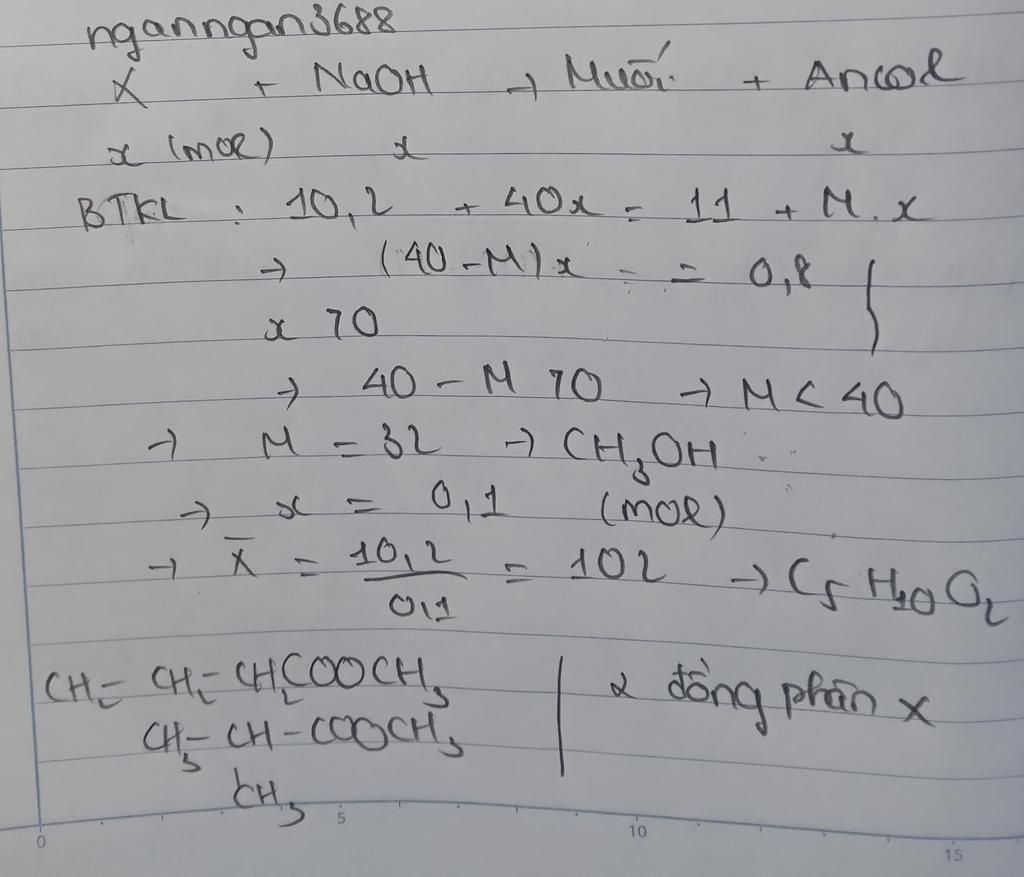 nganngan3688
X + NaOH → Muối + Ancol
x (mol) x x
BTKL : 10,2 + 40x = 11 + M.x
→ (40 - M)x = 0,8
x > 0
→ 40 - M > 0 → M < 40
→ M = 32 → CH₃OH
→ x = 0,1 (mol)
→ X̄ = 10,2/0,1 = 102 → C₅H₁₀O₂
CH₂- CH₂-CH₂COOCH₃
CH₃- CH-COOCH₃
CH₃
2 đồng phân X
0 5 10 15